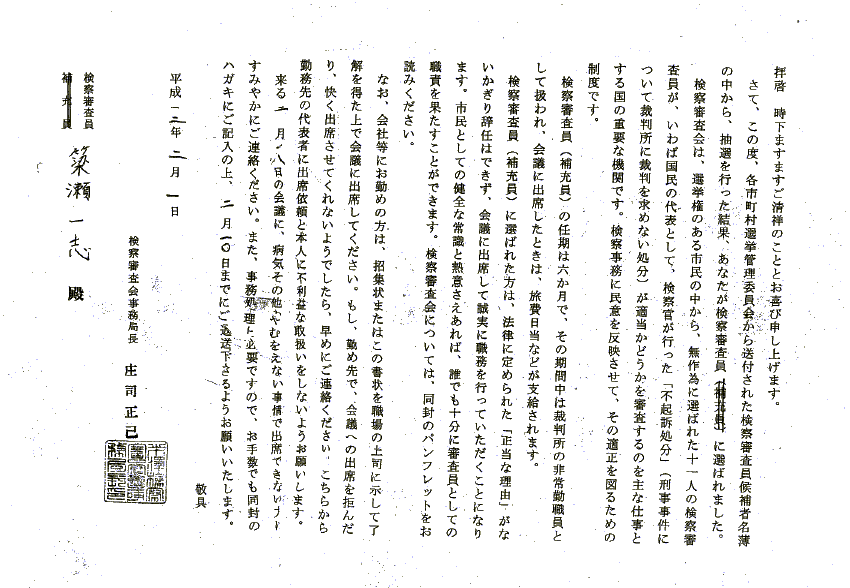 拝啓　時下ますますご清祥のこととお喜び申し上げます。
さて、この度、各市町村選挙管理委員会から送付された検察審査員候補者名薄
の中から、抽選を行った結果、あなたが検察審査員（補充員）に選ばれました。
検察審査会は、選挙権のある市民の中から、無作為に選ばれた十一人の検察審
査員が、いわば国民の代表として、検察官が行った「不起訴処分」（刑事事件に
ついて裁判所に裁判を求めない処分）が適当かどうかを審査するのを主な仕事と
する国の重要な機関です。検察事務に民意を反映させて、その適正を図るための
制度です。
検察審査員（補充員）の任期は六か月で、その期間中は裁判所の非常勤職員と
して扱われ、会議に出席したときは、旅費日当などが支給されます。
検察審査員（補充員）に選ばれた方は、法律に定められた「正当な理由」がな
いかぎり辞任はできず、会議に出席して誠実に職務を行っていただくことになり
ます。市民としての健全な常識と熱意さえあれば、誰でも十分に審査員としての
職責を果たすことができます。検察審査会については、同封のパンフレットをお
読みください。
なお、会社等にお勤めの方は、招集状またはこの書状を職場の上司に示して了
解を得た上で会議に出席してください。もし、勤め先で、会議への出席を拒んだ
り、快く出席させてくれないようでしたら、早めにご連絡ください。こちらから
勤務先の代表者に出席依頼と本人に不利益な取扱いをしないようお願いします。
来る二月一八日の会議に、病気その他やむをえない事情で出席できない方は
すみやかにご連絡ください。また、事務処理に必要ですので、お手数でも同封の
ハガキにご記入の上、二月一〇日までにご返送下さるようお願いいたします。
敬具
平成一二年二月一日
検察審査会事務局長　庄司正己
検察審査員
補充員
築瀬一志　殿